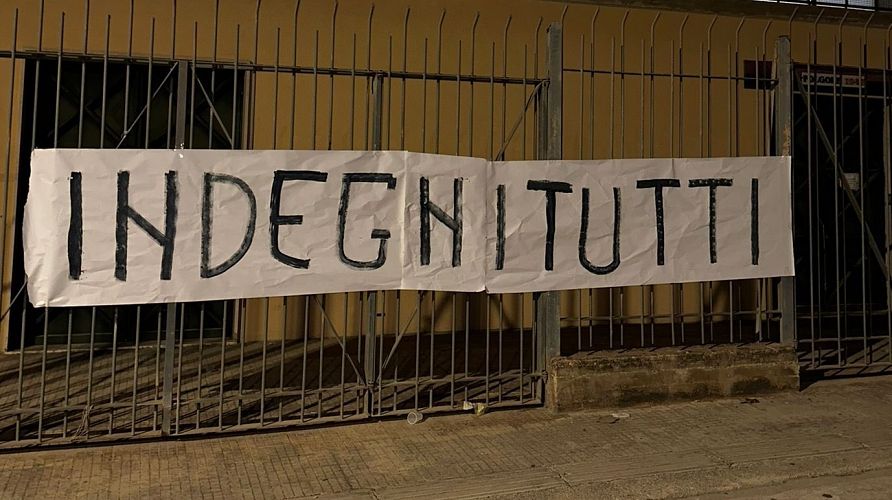 INDEGNI TUTTI